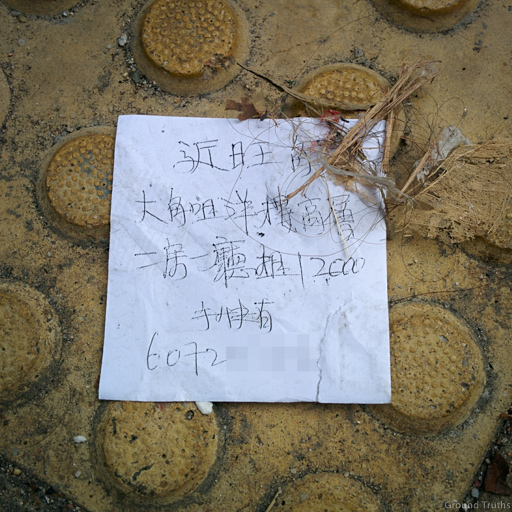 近旺角
大角咀洋樓高層
二房一廳租12000
手快有
6072
Ground Truths